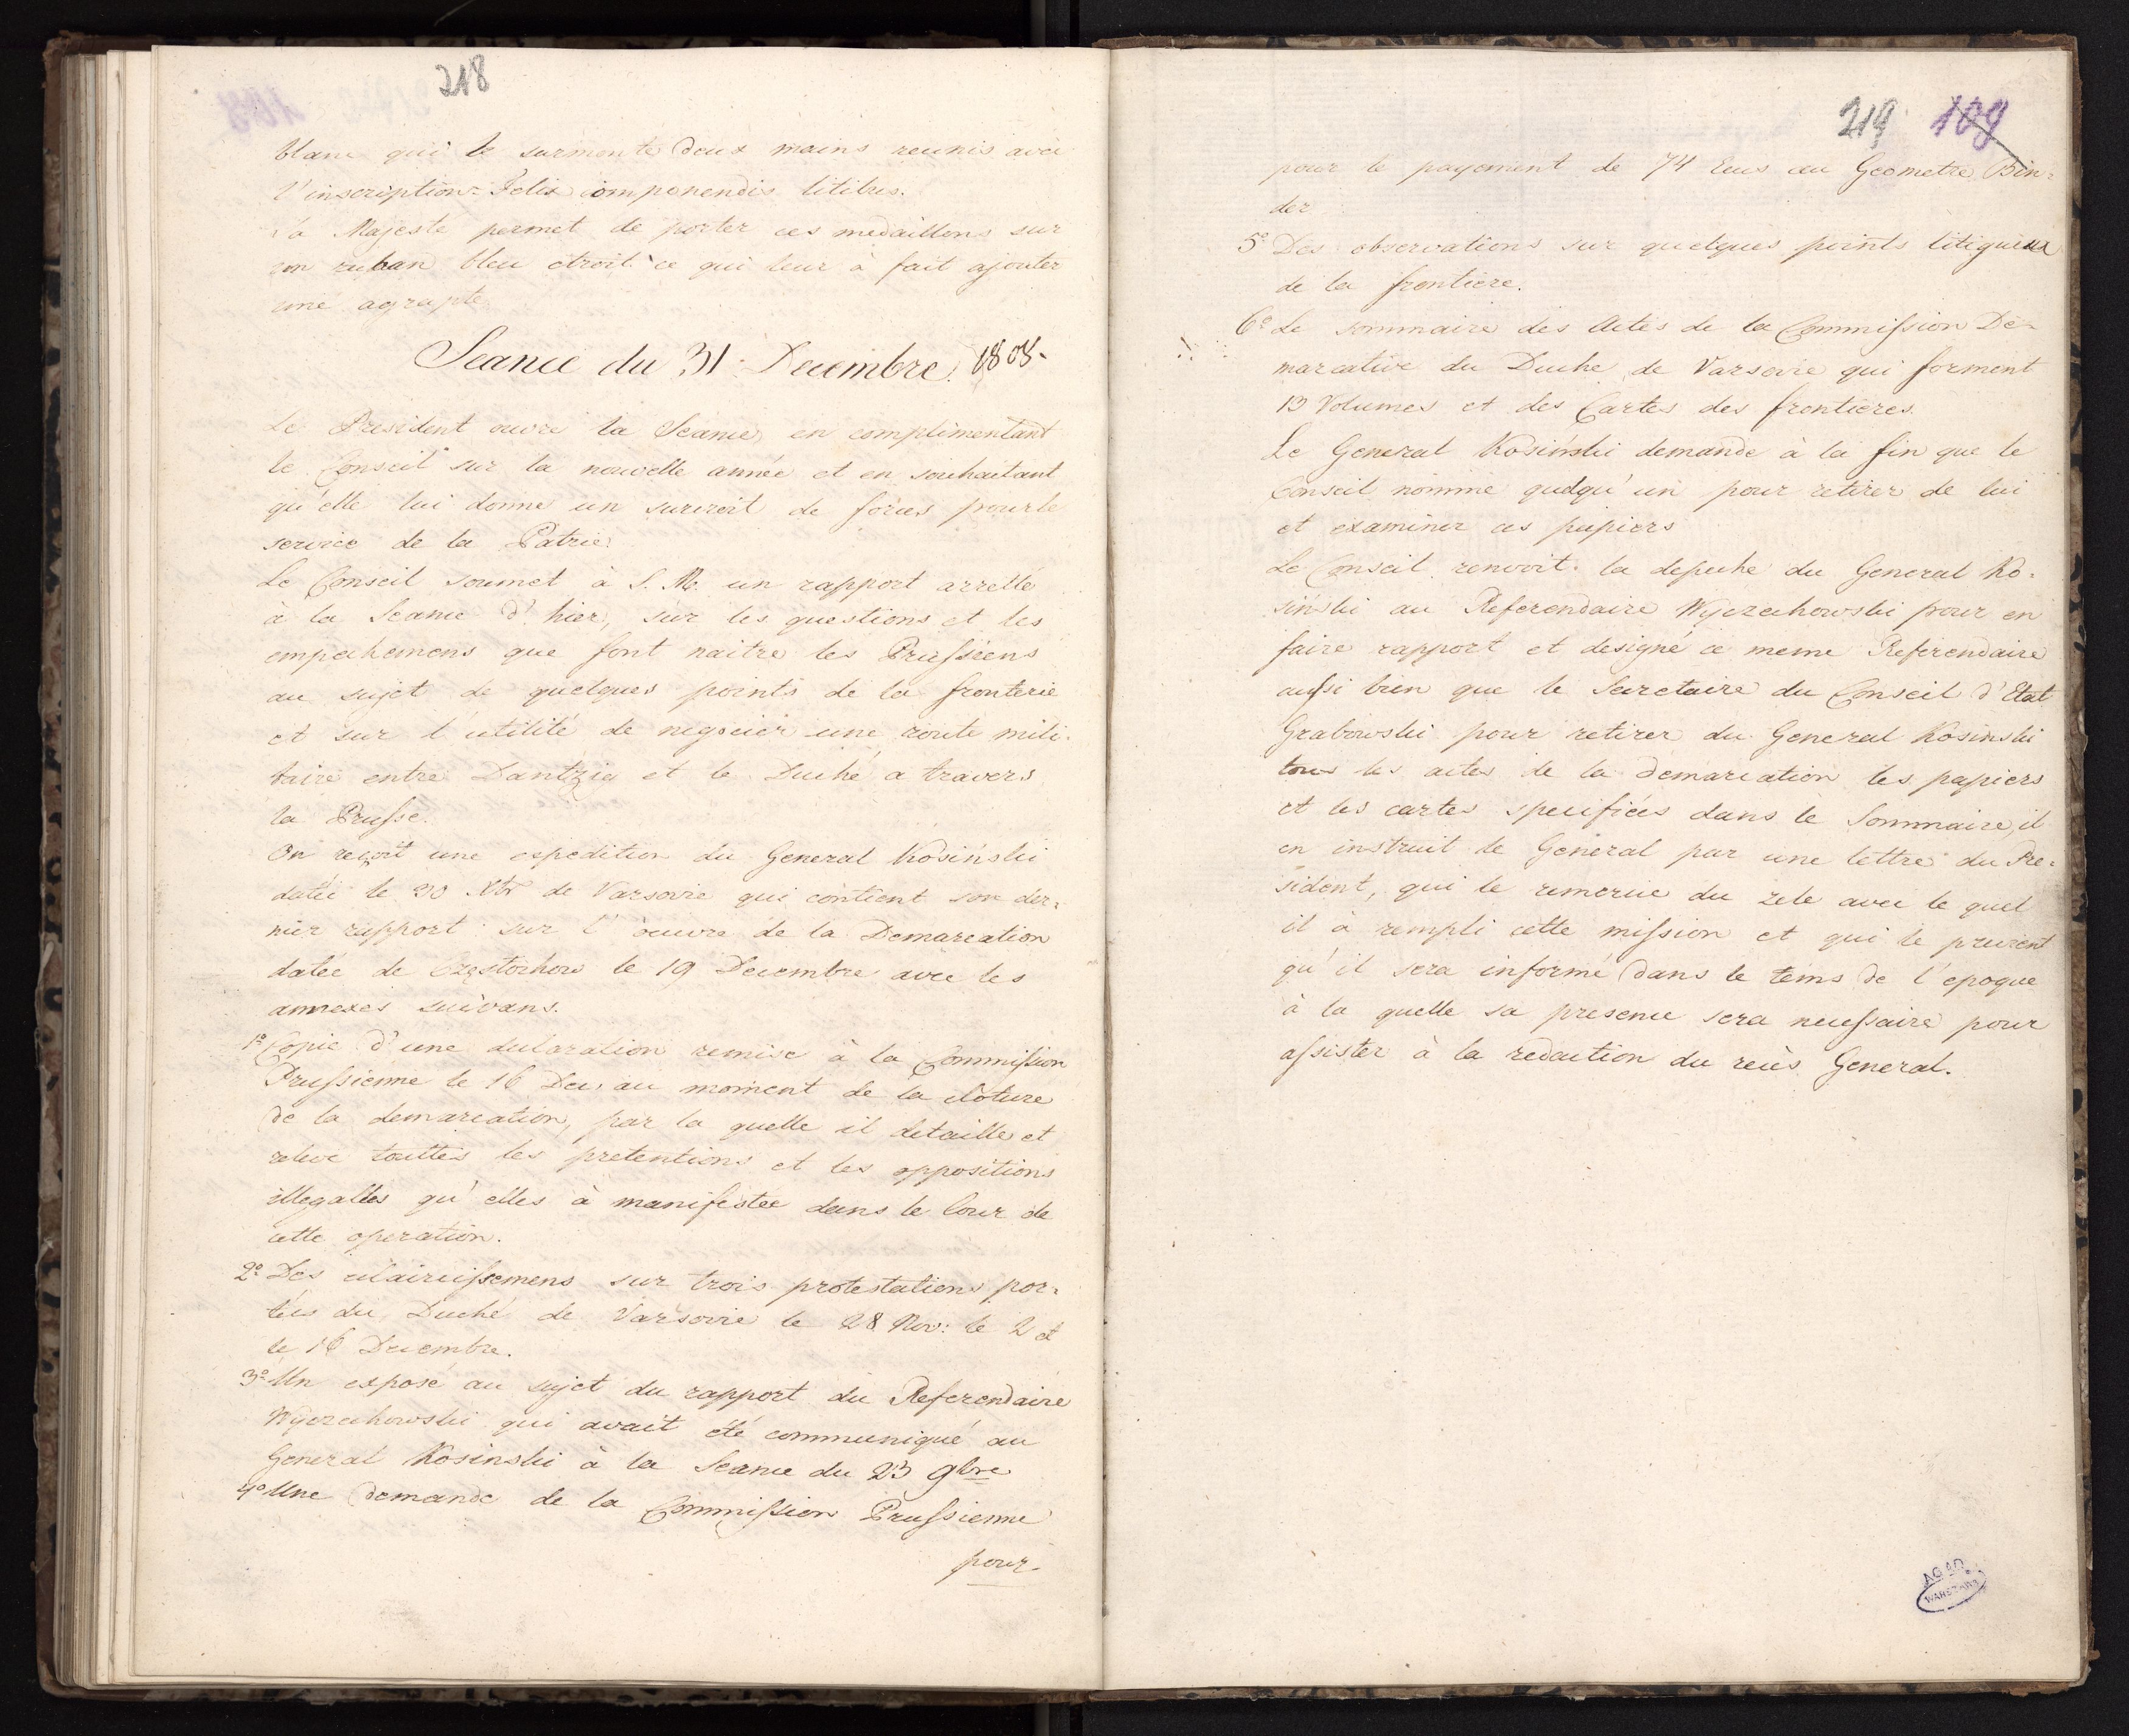 218
blanc qui le surmonte deux mains reunis avec
l'inscription: Felix componendis litibus.
Sa Majeste permet de porter ces medaillons sur
un ruban bleu etroit ce qui leur à fait ajouter
une agrapte
Seance du 31 Decembre. 1808.
Le President ouvre la Seance, en complimentant
le Conseil sur la nouvelle année et en souhaitant
qu'elle lui donne un surcroit de forces pour le
service de la Patrie.
Le Conseil soumet à S. M. un rapport arrellé
à la Seance d'hier, sur les questions et les
empechemens que font naitre les Prussiens
au sujet de quelques points de la fronterie
et sur l'utilité de negocier une route mili-
taire entre Dantzig et le Duché a travers
la Prusse.
On reçoit une expedition du General Kosiński
datée le 30 Xbr de Varsovie qui contient son der-
nier rapport sur l'oeuvre de la Demarcation
datée de Częstochow le 19 Decembre avec les
annexes suivans.
1º Copie d'une declaration remise à la Commission
Prussienne le 16 Dec. au moment de la cloture
de la demarcation, par la quelle il detaille et
releve touttes les pretentions et les oppositions
illegalles qu'elles à manifestée dans le Cour de
cette operation.
2º Des eclaircissemens sur trois protestations por-
tées du Duché de Varsovie le 28 Nov: le 2 et
le 16 Decembre.
3º Un exposé au sujet du rapport du Referendaire
Wyczechowski qui avait été communiqué au
General Kosinski à la Seance du 23 9bre
4º Une demande de la Commission Prussienne
pour
219 109
pour le payement de 74 Ecus au Geometre Bin-
der
5º Des observations sur quelques points litigieux
de la frontiere.
6º Le sommaire des Actes de la Commission De-
marcative du Duche de Varsovie qui forment
13 Volumes et des Cartes des frontieres.
Le General Kosiński demande à la fin que le
Conseil nomme quelqu'un pour retirer de lui
et examiner ces papiers
Le Conseil renvoit la depeche du General Ko-
siński au Referendaire Wyczechowski pour en
faire rapport et designé ce meme Referendaire
aussi bien que le Secretaire du Conseil d'Etat
Grabowski pour retirer du General Kosinski
tous les actes de la demarcation les papiers
et les cartes specifiées dans le Sommaire, il
en instruit le General par une lettre du Pre-
sident, qui le remercie du zele avec le quel
il à rempli cette mission et qui le previent
qu'il sera informé dans le tems de l'epoque
à la quelle sa presence sera necessaire pour
assister à la redaction du recès General.
AGAD
WARSZAWA